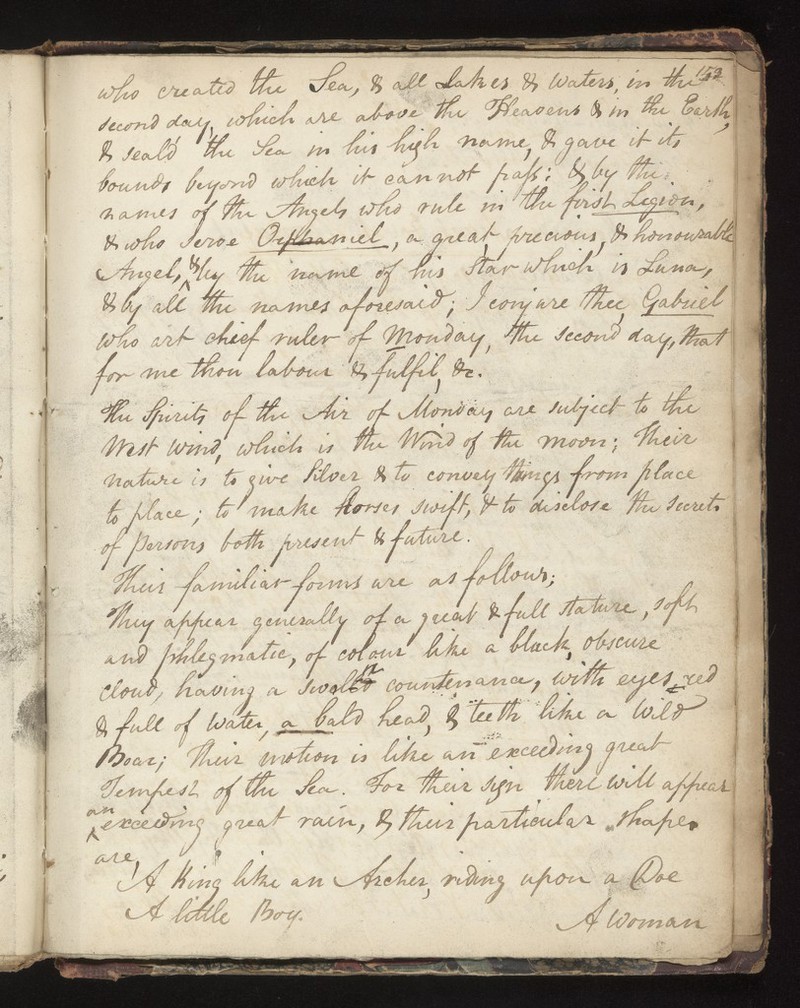 153
who created the Sea, & all Lakes & Waters, in the
second day, which are above the Heavens & in the Earth,
& seal'd the Sea in his high name, & gave it its
bounds beyond which it cannot pass: & by the
names of the Angels who rule in the first Legion,
& who serve Orphaniel, a great, precious, & honourable
Angel, & by the name of his Star which is Luna,
& by all the names aforesaid; I conjure thee, Gabriel
who art chief ruler of Monday, the second day, that
for me thou labour & fulfil, &c.
The Spirits of the Air of Monday are subject to the
West Wind, which is the Wind of the moon; Their
nature is to give Silver & to convey things from place
to place; to make horses swift, & to disclose the secrets
of Persons both present & future.
Their familiar forms are as follows;
They appear generally of a great & full stature, soft
and phlegmatic, of colour like a black, obscure
cloud, having a swoln countenance, with eyes red
& full of water, a bald head, & teeth like a Wild
Boar; Their motion is like an exceeding great
Tempest of the Sea. For their sign there will appear
an exceeding great rain, & their particular shapes
are,
A King like an Archer, riding upon a Doe
A little Boy.
A Woman